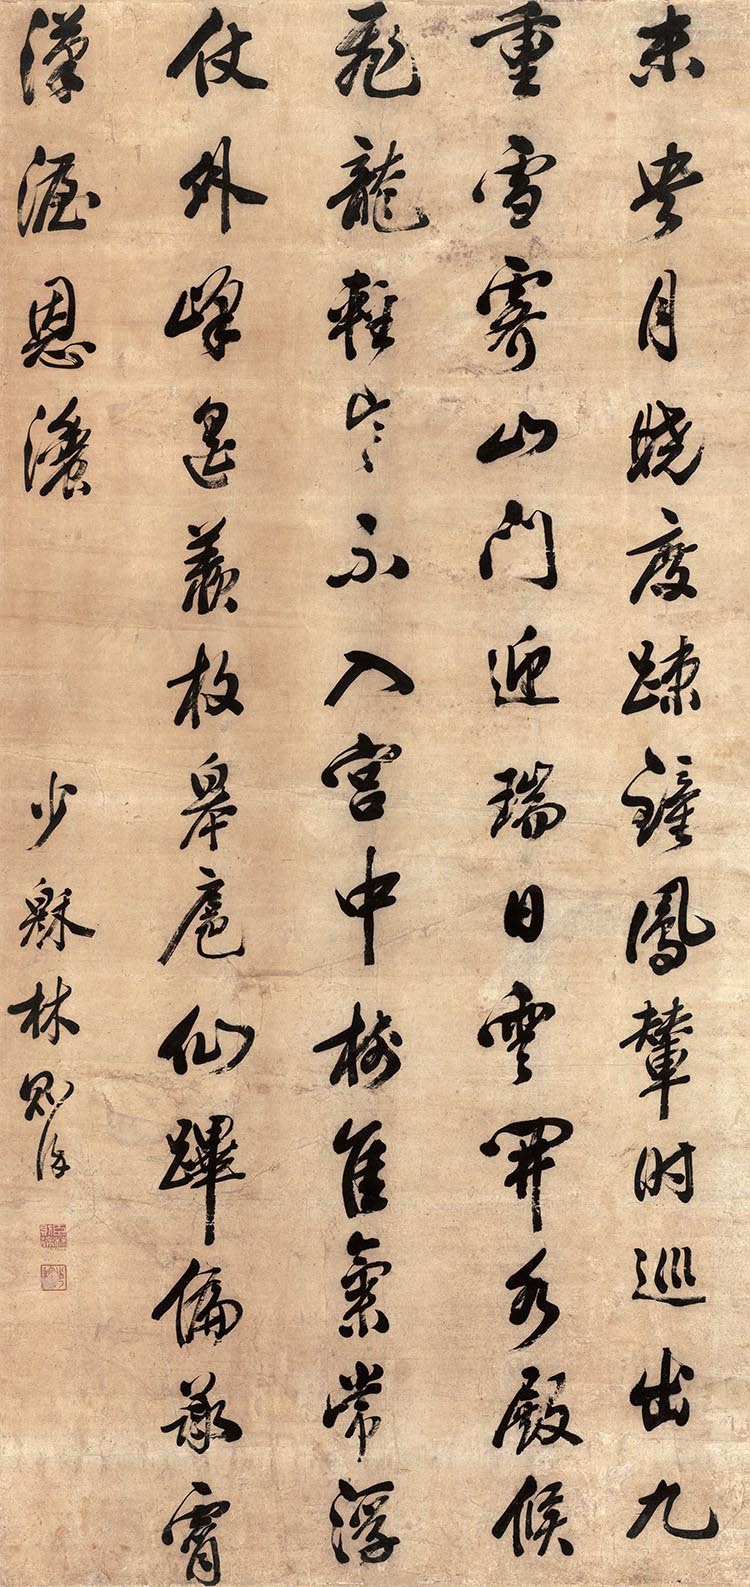 未央月曉度踈鐘鳳輦時巡出九
重雪霽山門迎瑞日雲開水殿候
飛龍輕寒不入宮中樹佳氣常浮
仗外峰遙羨枚皋扈仙蹕偏承霄
漢渥恩濃
少穌林則徐